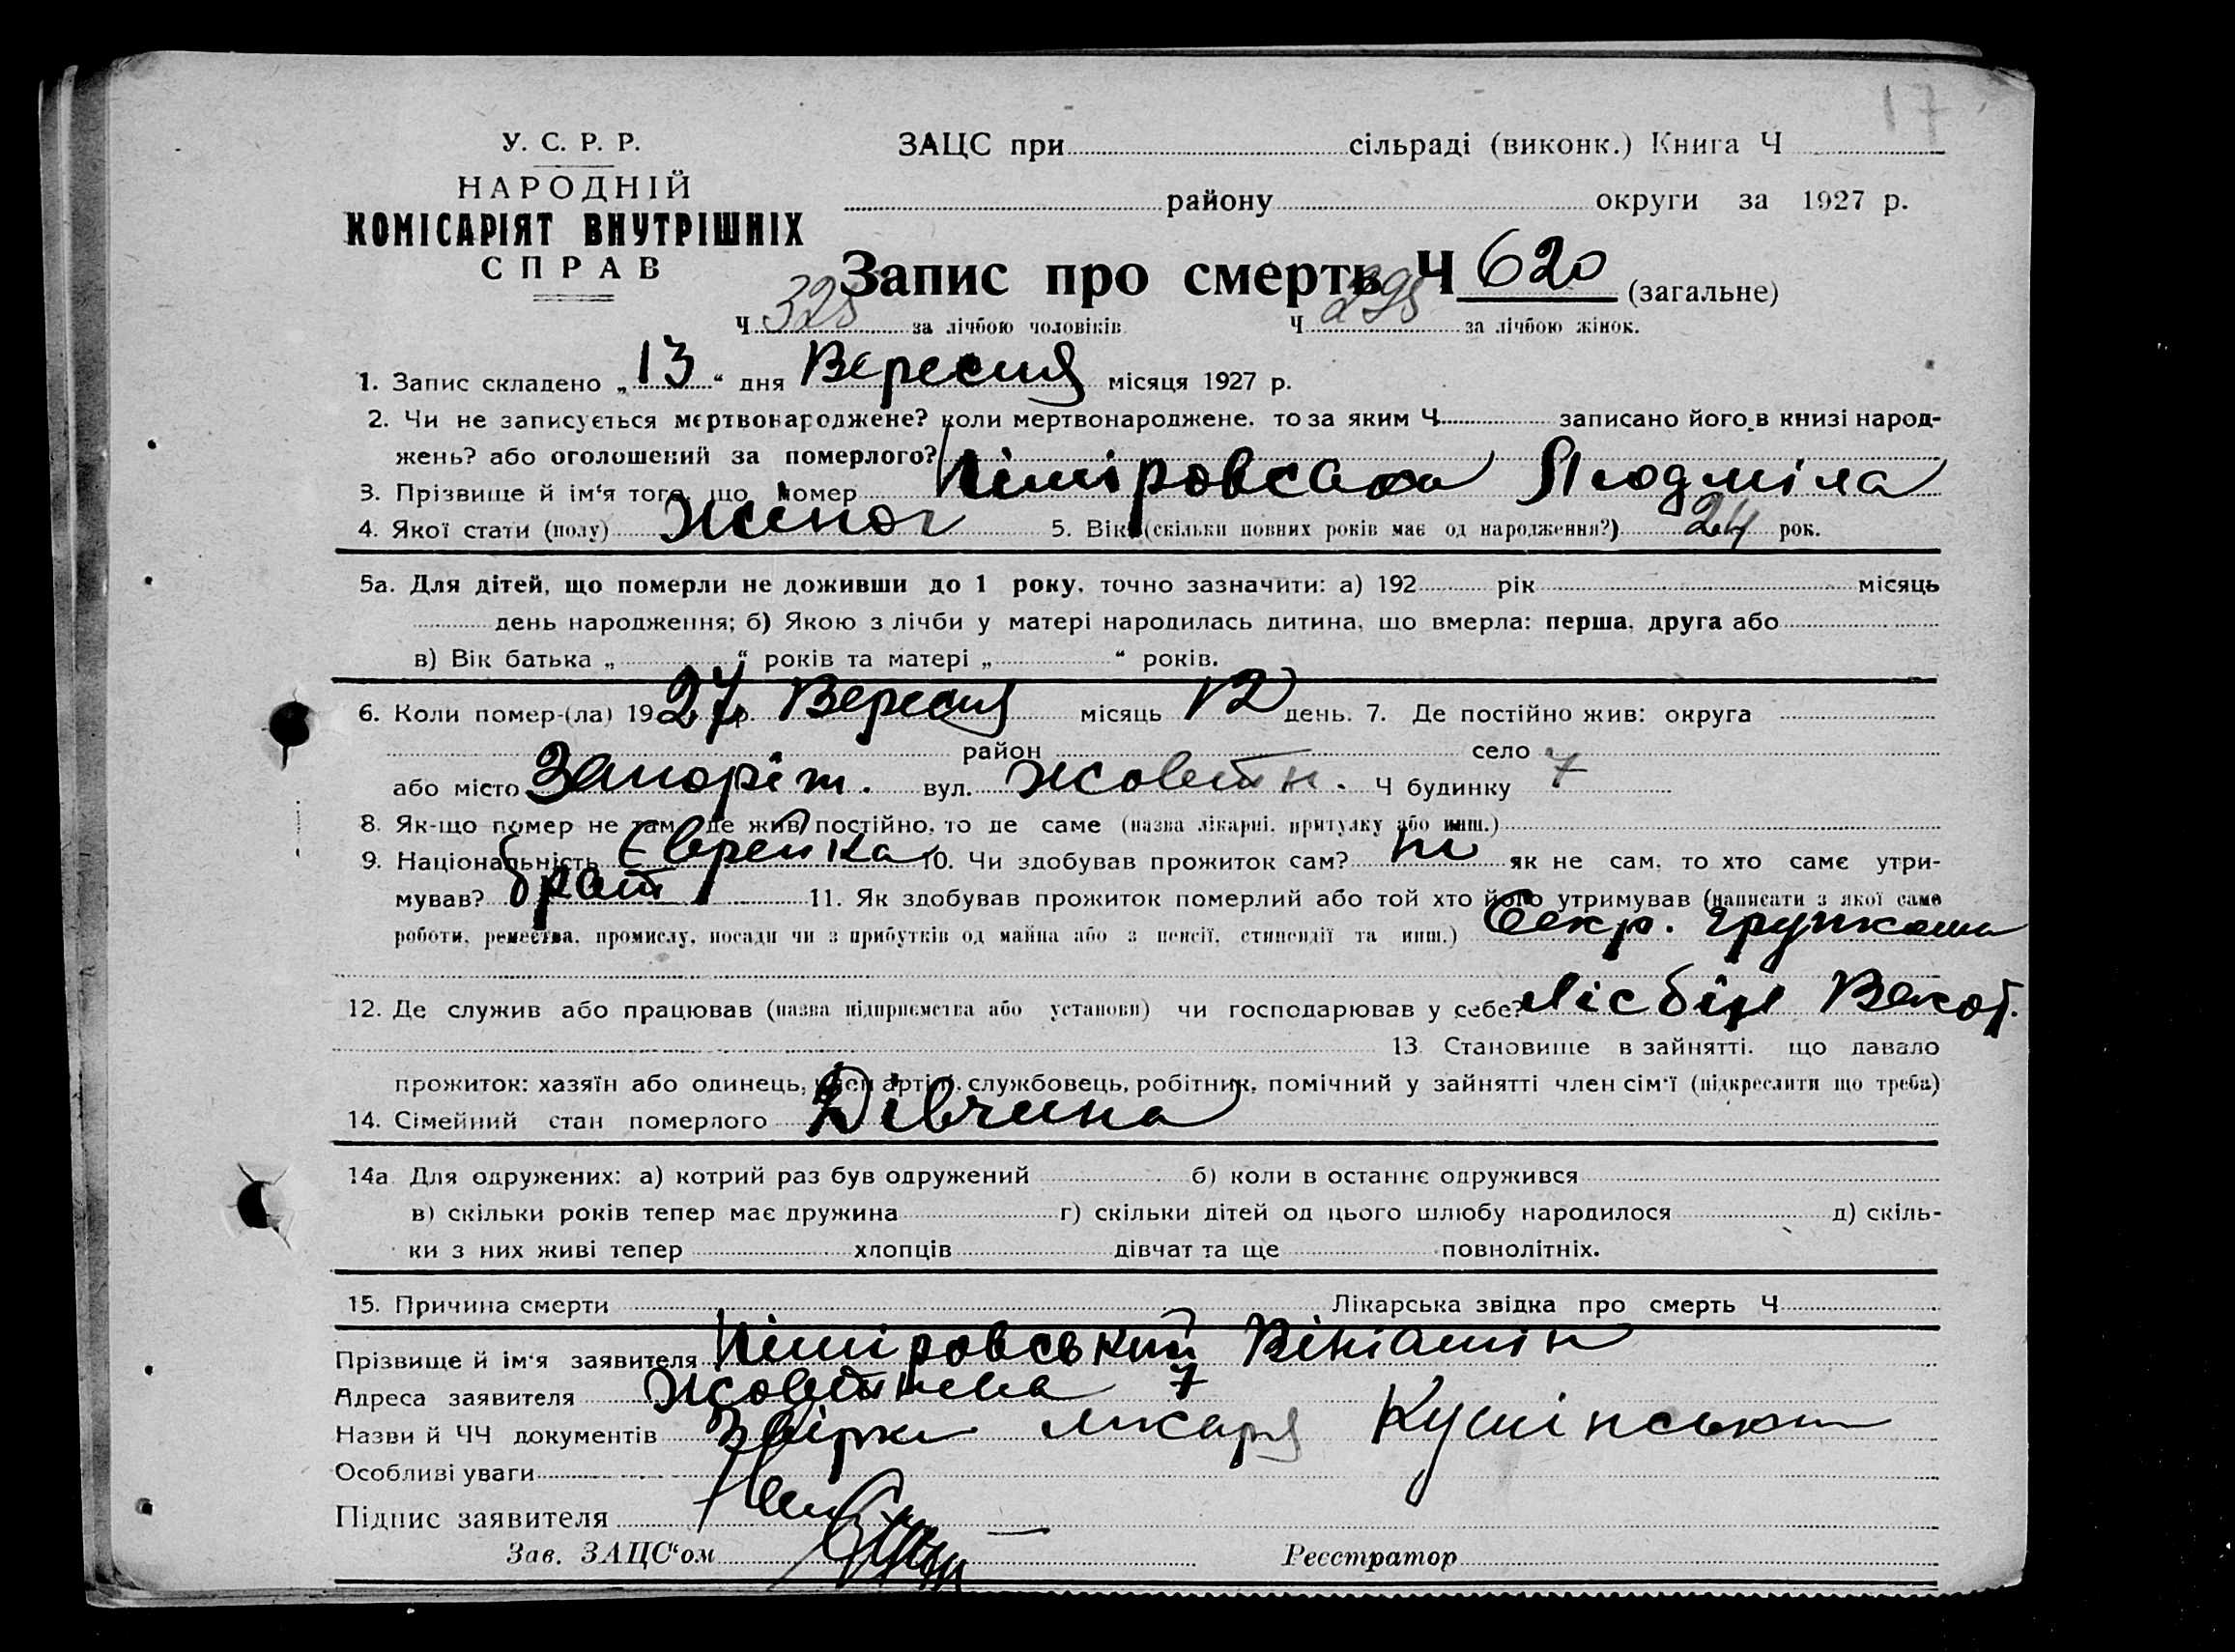 17
У. С. Р. Р.
НАРОДНІЙ
КОМІСАРІЯТ ВНУТРІШНІХ
СПРАВ
ЗАЦС при сільраді (виконк.) Книга Ч
району округи за 1927 р.
Запис про смерть Ч 620 (загальне)
Ч 325 за лічбою чоловіків Ч 295 за лічбою жінок.
1. Запис складено „13“ дня Вересня місяця 1927 р.
2. Чи не записується мертвонароджене? коли мертвонароджене, то за яким Ч записано його в книзі народ-
жень? або оголошений за померлого?
3. Прізвище й ім‘я того, що помер Німіровська Людміла
4. Якої стати (полу) Жіноч 5. Вік (скільки повних років має од народження?) 24 рок.
5а. Для дітей, що померли не доживши до 1 року, точно зазначити: а) 192 рік місяць
день народження; б) Якою з лічби у матері народилась дитина, що вмерла: перша, друга або
в) Вік батька „ “ років та матері „ “ років.
6. Коли помер-(ла) 1927 р. Вересня місяць 12 день. 7. Де постійно жив: округа
район село
або місто Запоріж. вул. Жовтн. Ч будинку 7
8. Як-що помер не там, де жив постійно, то де саме (назва лікарні, притулку або инш.)
9. Національність Єврейка 10. Чи здобував прожиток сам? ні як не сам, то хто саме утри-
мував? брат 11. Як здобував прожиток померлий або той хто його утримував (написати з якої саме
роботи, ремества, промислу, посади чи з прибутків од майна або з пенсії, стипендії та инш.) Секр. групкома
12. Де служив або працював (назва підприємства або установи) чи господарював у себе?
13. Становище в зайнятті, що давало
прожиток: хазяїн або одинець, член артілі, службовець, робітник, помічний у зайнятті член сім‘ї (підкреслити що треба)
14. Сімейний стан померлого Дівчина
14а. Для одружених: а) котрий раз був одружений б) коли в останнє одружився
в) скільки років тепер має дружина г) скільки дітей од цього шлюбу народилося д) скіль-
ки з них живі тепер хлопців дівчат та ще повнолітніх.
15. Причина смерти Лікарська звідка про смерть Ч
Прізвище й ім‘я заявителя Німіровський Веніамін
Адреса заявителя Жовтнева 7
Назви й ЧЧ документів лікаря
Особливі уваги
Підпис заявителя
Зав. ЗАЦС‘ом Реєстратор